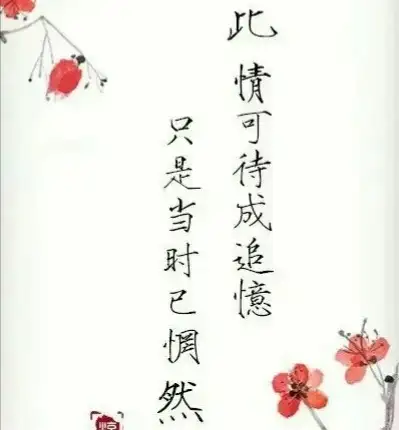 此情可待成追憶
只是当时已惘然